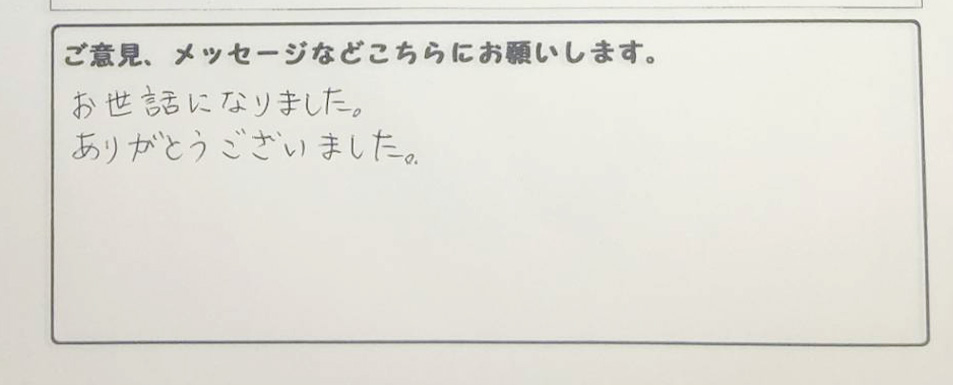 ご意見、メッセージなどこちらにお願いします。
お世話になりました。
ありがとうございました。